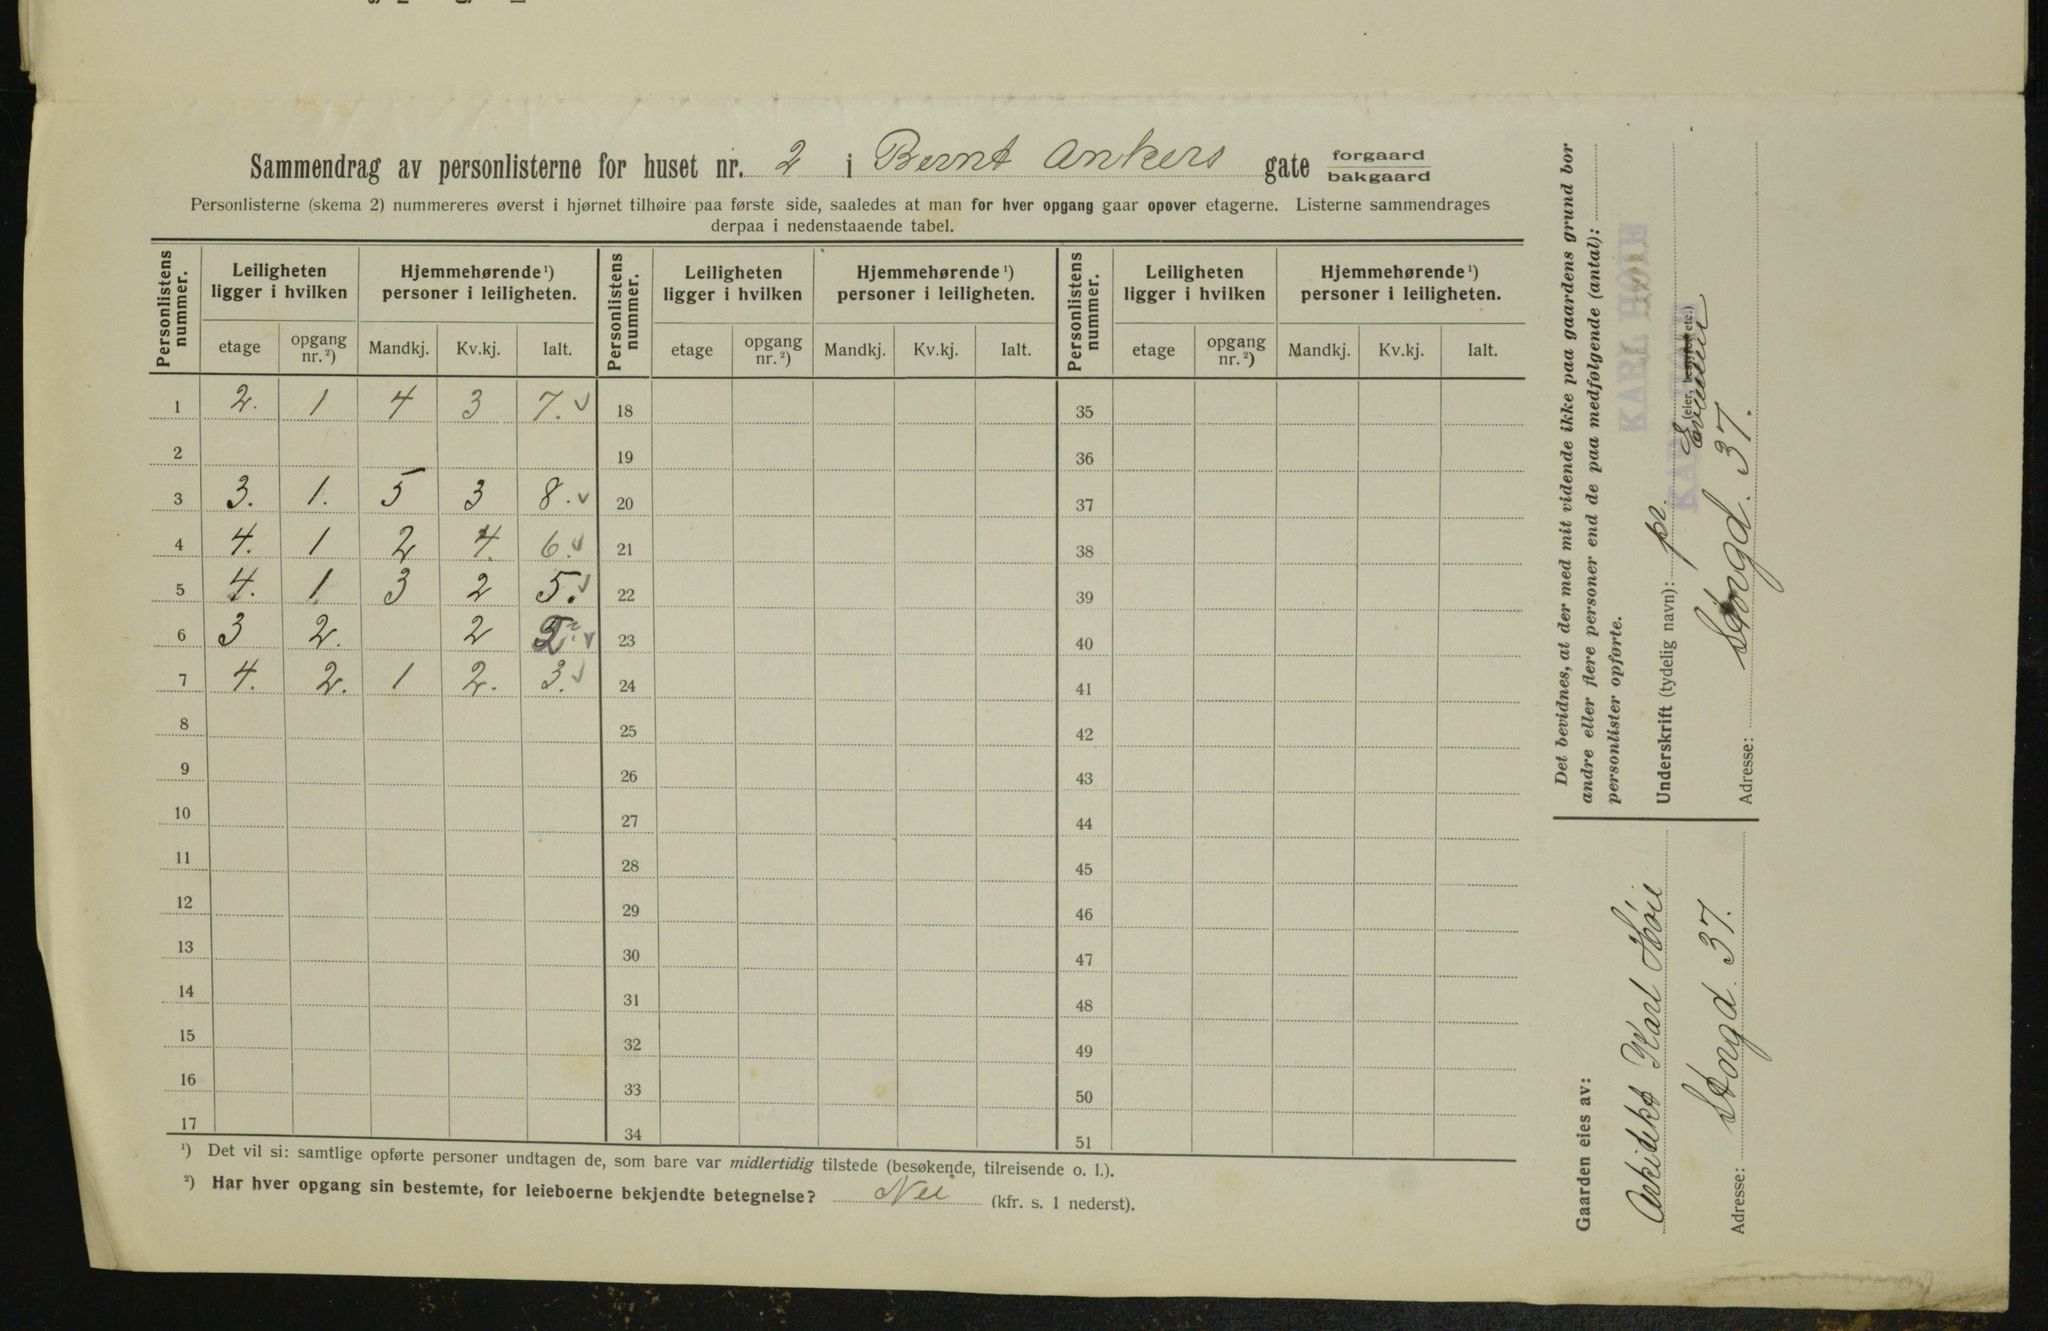 Sammendrag av personlisterne for huset nr. 2 i Bernt Ankers gate forgaard
bakgaard
Personlisterne (skema 2) nummereres øverst i hjørnet tilhøire paa første side, saaledes at man for hver opgang gaar opover etagerne. Listerne sammendrages
derpaa i nedenstaaende tabel.
Personlistens nummer. Leiligheten ligger i hvilken Hjemmehørende ¹) personer i leiligheten. Personlistens nummer. Leiligheten ligger i hvilken Hjemmehørende ¹) personer i leiligheten. Personlistens nummer. Leiligheten ligger i hvilken Hjemmehørende ¹) personer i leiligheten.
etage opgang nr. ²) Mandkj. Kv.kj. Ialt. etage opgang nr. ²) Mandkj. Kv.kj. Ialt. etage opgang nr. ²) Mandkj. Kv.kj. Ialt.
1 2. 1 4 3 7. 18 35
2 19 36
3 3. 1. 5 3 8. 20 37
4 4. 1 2 4. 6. 21 38
5 4. 1 3 2 5. 22 39
6 3 2. 2 23 40
7 4. 2. 1 2. 3. 24 41
8 25 42
9 26 43
10 27 44
11 28 45
12 29 46
13 30 47
14 31 48
15 32 49
16 33 50
17 34 51
¹) Det vil si: samtlige opførte personer undtagen de, som bare var midlertidig tilstede (besøkende, tilreisende o. l.).
²) Har hver opgang sin bestemte, for leieboerne bekjendte betegnelse? Nei (kfr. s. 1 nederst).
Det bevidnes, at der med mit vidende ikke paa gaardens grund bor
andre eller flere personer end de paa medfølgende (antal):
personlister opførte.
KARL HØIE
Underskrift (tydelig navn): pr.
KARL HØIE
(eier, etc.)
Adresse: Storgd. 37.
Gaarden eies av:
Arkitekt Karl Höie
Adresse: Storgd. 37.